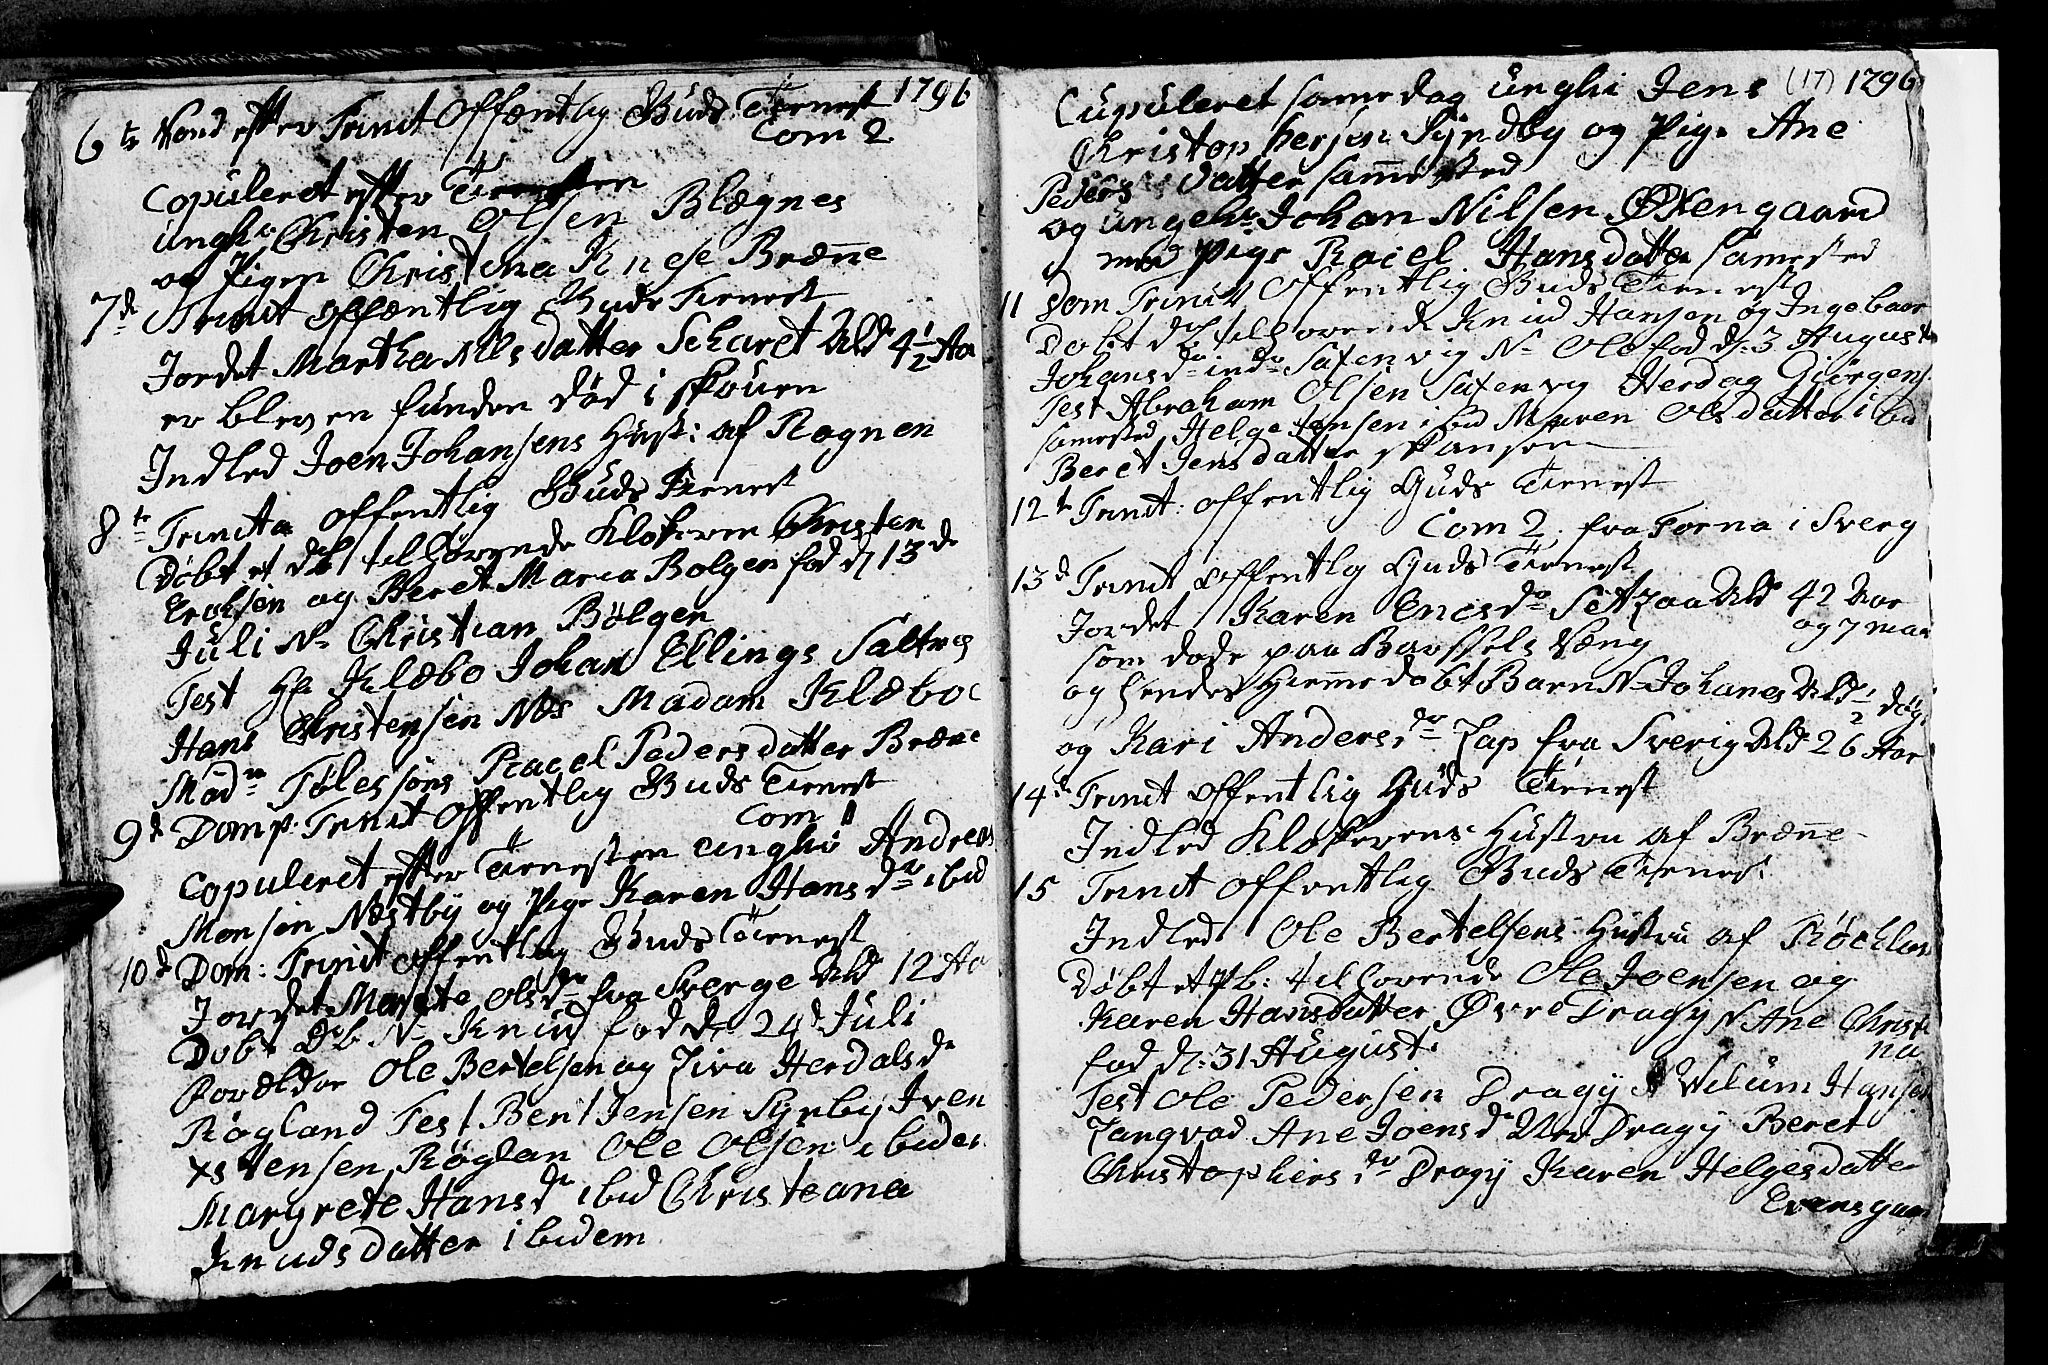 1796
6te Sønd efter Trinit Offentlig Guds Tienest
Com 2
Copuleret efter Tienesten
unghr Christen Olsen Blægnes
og Pigen Christina Knese Brænne
7de Trinit Offentlig Guds Tienest
Jordet Martha Nilsdatter Scharet Ald 4½ Aa
er bleven funden død i skouen
Indled Joen Johansens Hust: af Rognen
8te Trinita Offentlig Guds Tienest
Døbt et db tilhørende Klokeren Christen
Erichsen og Beret Maria Bolgen fød d 13de
Juli N. Christian Bølgen
Test Hr Klæbo Johan Ellings Saltnes
Hans Christensen Næs Madam Klæboe
Madm Tølessøns Racel Pedersdatter Brænne
9de Domp. Trinit Offentlig Guds Tienest
Com 11
Copuleret efter Tienesten unghr Andreas
Monsen Næstby og Pige Karen Hansdr ibid
10de Dom: Trinit offentlig Guds Tienest
Jordet Margte Olsdr fra Sverge Ald 12 Aa
Døbt db N. Knud fød d. 24de Juli
Forældre Ole Bertelsen og Ziva Herdalsdr
Røgland Test Bent Jensen Synby Iven
Jensen Røglan Ole Olsen ibidem
Margrete Hansdr ibid Christeana
Knudsdatter ibidem
(17) 1796
Cupuleret samedag unghr Jens
Christophersen Syndby og Pige Ane
Pedersdatter sammested
og ungehr Johan Nilsen Øxengaard
med Pige Racel Hansdatter samested
11 Dom Trinit Offentlig Guds Tienest
Døbt db tilhørende Knud Hansen og Ingebaar
Johansdr indr Saxenvig N. Ole fød d. 3 August
Test Abraham Olsen Saxenvig Herdag Giörgens
samested Helge Jensen ibid Maren Olsdatter ibid
Beret Jensdatter skansen
12te Trinit: offentlig Guds Tienest
Com 2, fra Torna i Sverg
13de Trinit offentlig Guds Tienest
Jordet Karen Encsdr Setzaa Ald 42 Aar
og 7 maa
som døde paa Barssels Sæng
og hendes Hiemmedøbt Barn N. Johanes Ald ½ døgn
og Kari Andersdr Lap fra Sverig Ald 26 Aar
14de Trinit offentlig Guds Tienest
Indled Klokerens Hustru af Brænne
15 Trinit Offentlig Guds Tienest
Indled Ole Bertelsens Hustru af Røchlan
Døbt et pb: tilhørende Ole Joensen og
Karen Hansdatter Øvre Dragy N Ane Christi
na
fød d. 31 August
Test Ole Pedersen Dragy Wilum Hansen
Langvad Ane Joensdr Dragy Beret
Christophersdr Dragy Karen Helgesdatter
Evensgaar